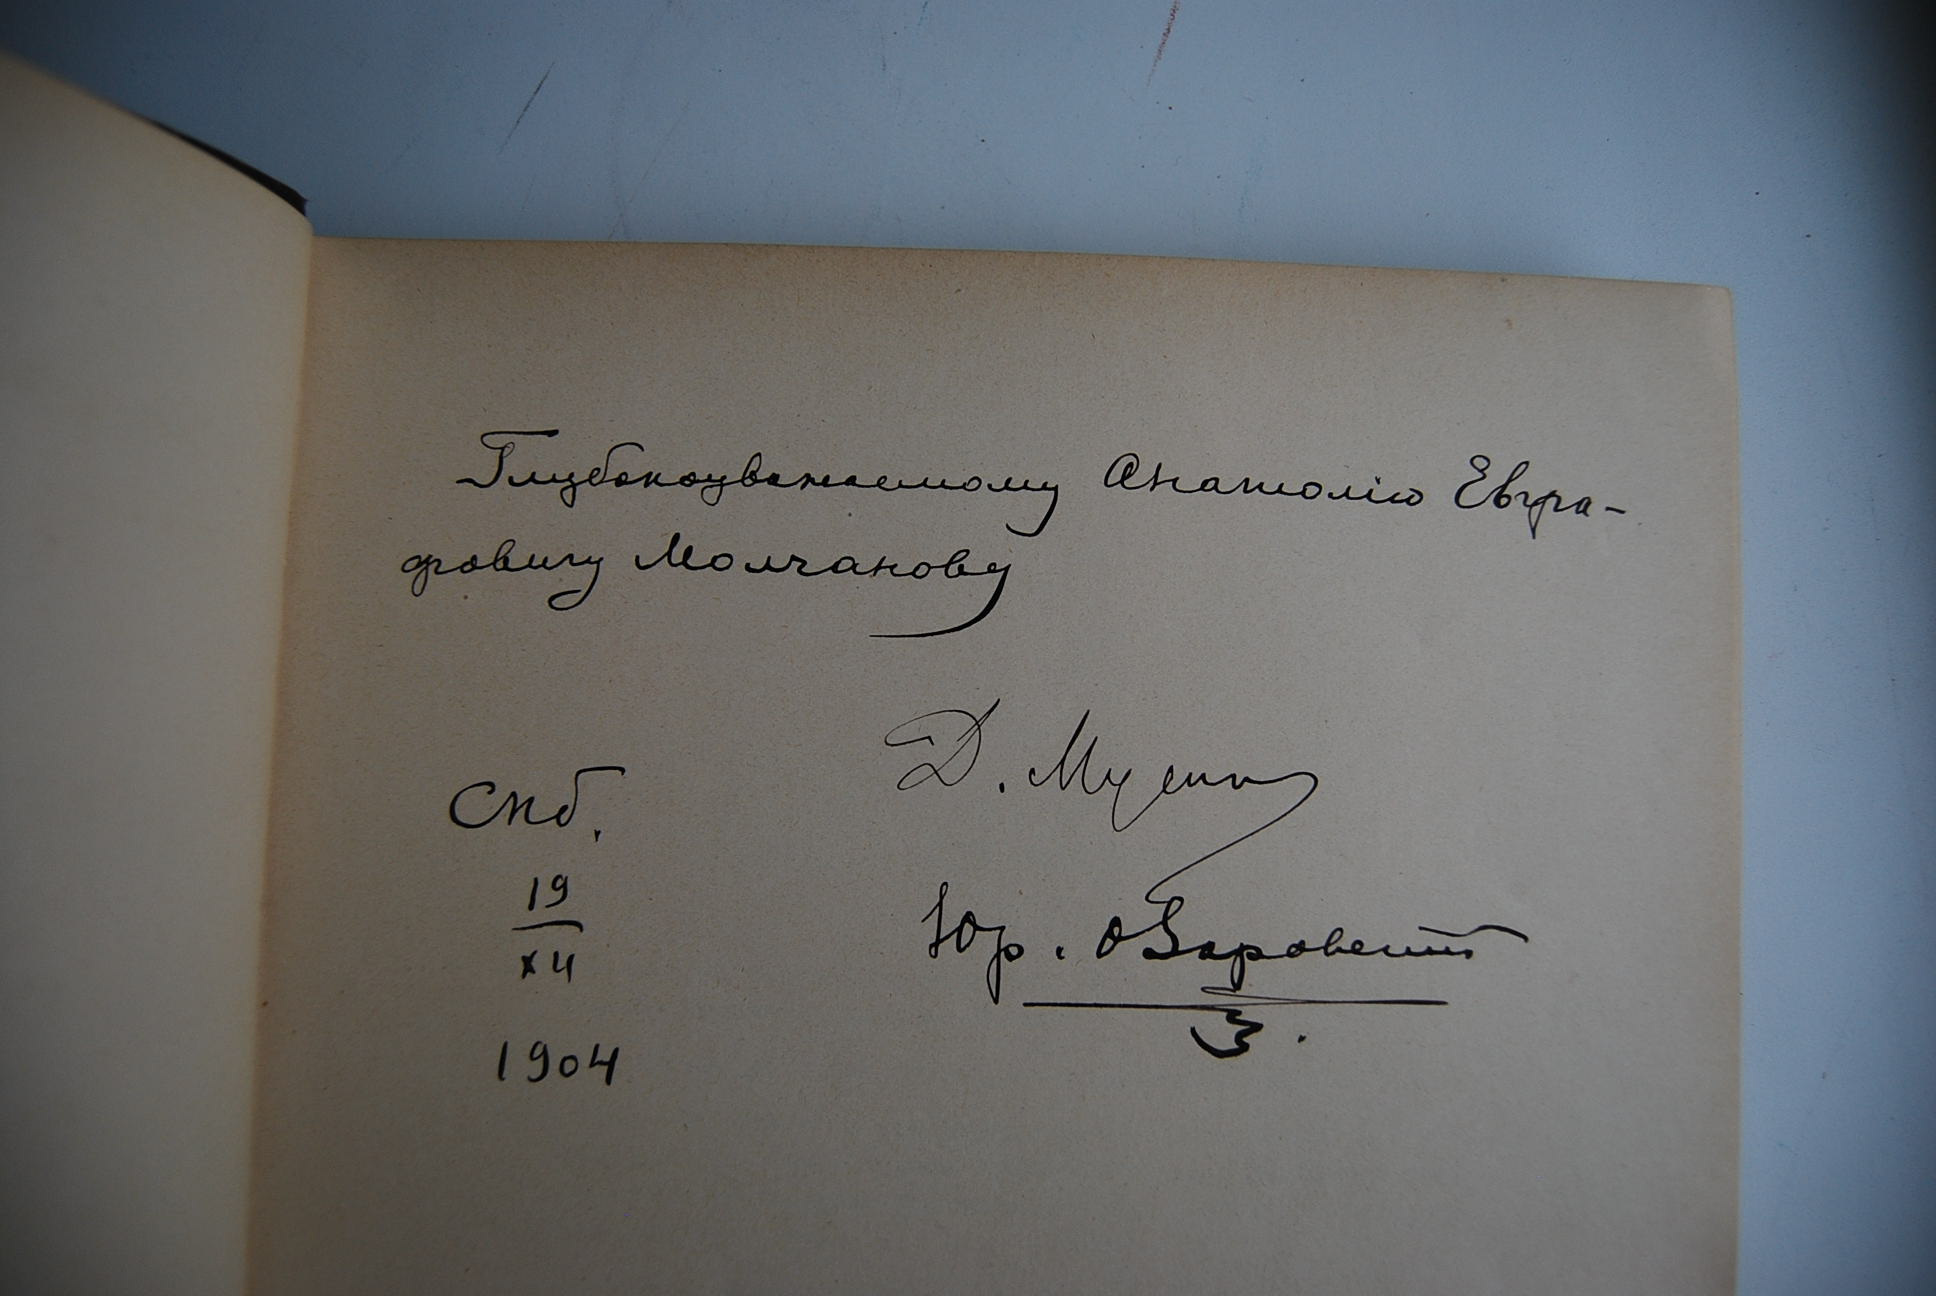 Глубокоуважаемому Анатолію Евгра-
фовичу Молчанову
Д. Мусин
Спб.
19
XII
Юр. Озаровский
1904